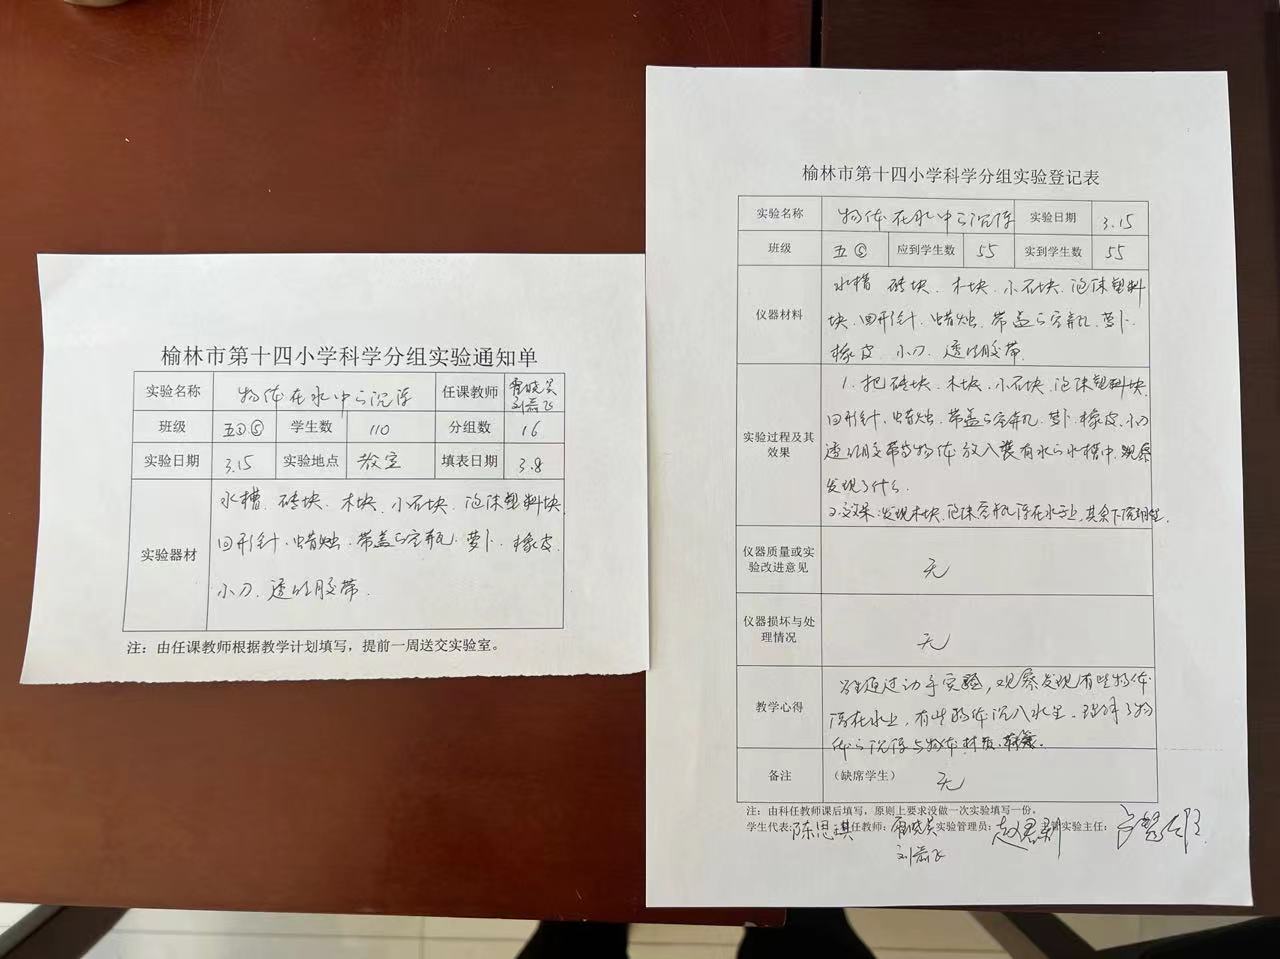 榆林市第十四小学科学分组实验通知单
实验名称 物体在水中的沉浮 任课教师
刘荔飞
班级 五 ⑤ 学生数 110 分组数 16
实验日期 3.15 实验地点 教室 填表日期 3.8
水槽、砖块、木块、小石块、泡沫塑料块
实验器材 回形针、蜡烛、带盖的空瓶、萝卜、橡皮、
小刀、透明胶带.
注：由任课教师根据教学计划填写，提前一周送交实验室。
榆林市第十四小学科学分组实验登记表
实验名称 物体在水中的沉浮 实验日期 3.15
班级 五⑤ 应到学生数 55 实到学生数 55
水槽 砖块、木块、小石块、泡沫塑料
仪器材料 块、回形针、蜡烛、带盖的空瓶、萝卜、
橡皮、小刀、透明胶带
1、把砖块、木块、小石块、泡沫塑料块
回形针、蜡烛、带盖的空瓶、萝卜、橡皮、小刀
实验过程及其效果 透明胶带等物体放入装有水的水槽中,观察
发现了什么.
2、效果:发现木块、泡沫空瓶浮在水上,其余下沉
仪器质量或实验改进意见 无
仪器损坏与处理情况 无
学生通过动手实验,观察发现有些物体
教学心得 浮在水上,有些物体沉入水里、理解了物
体的沉浮与物体材质、有关.
备注 （缺席学生） 无
注：由科任教师课后填写，原则上要求没做一次实验填写一份。
学生代表: 陈思琪 任教师: 实验管理员: 主管实验主任:
刘荔飞